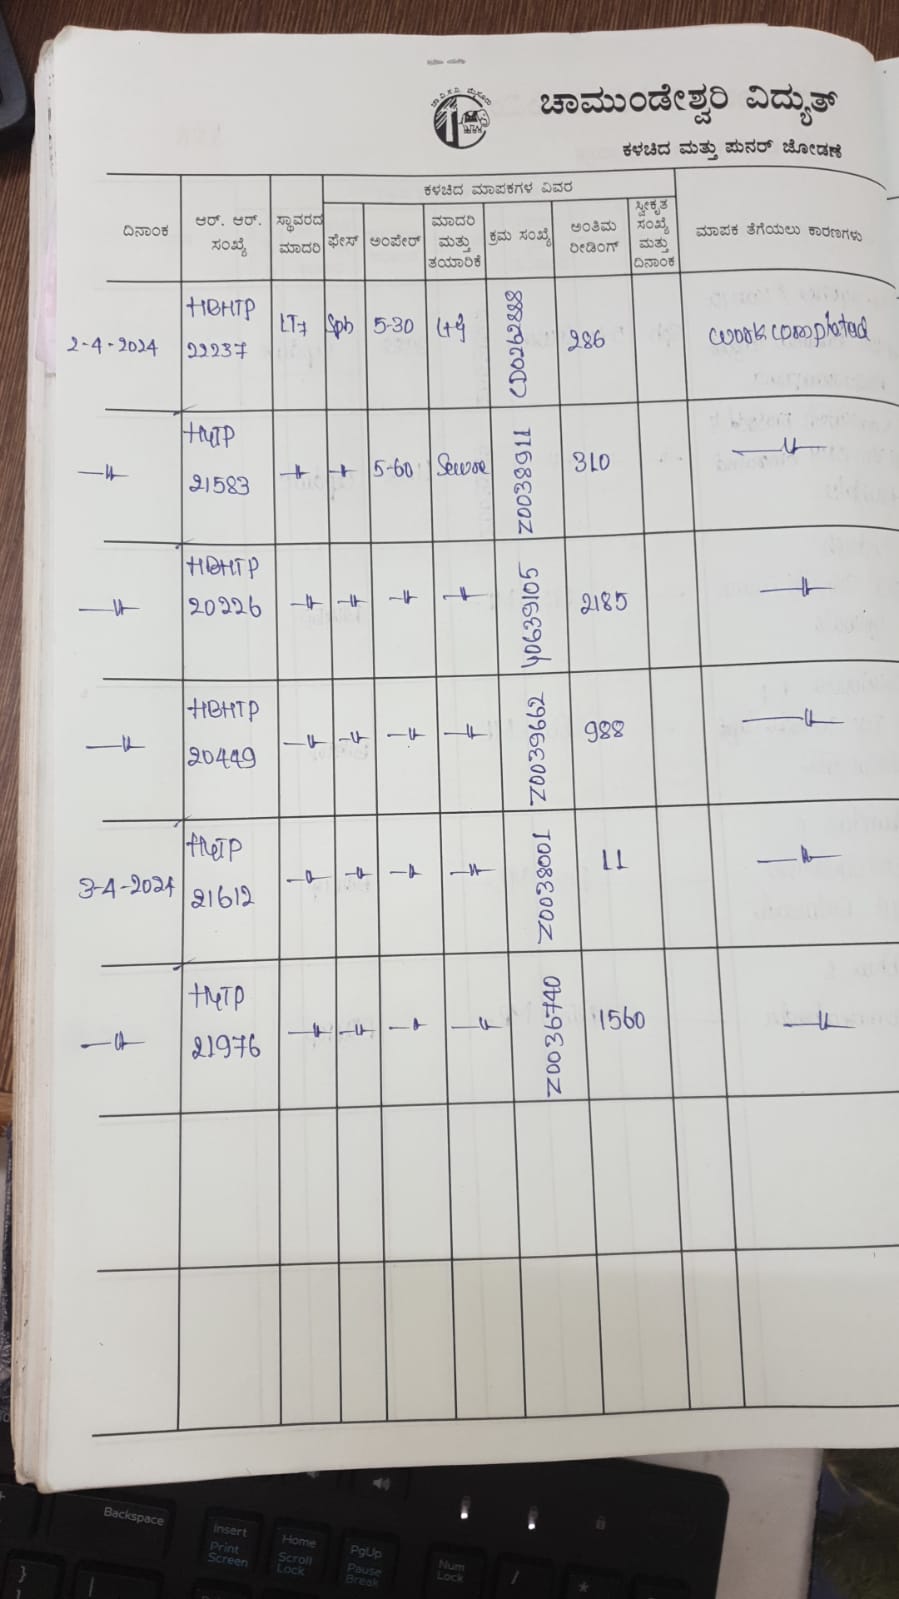 ಚಾಮುಂಡೇಶ್ವರಿ ವಿದ್ಯುತ್
ಕಳಚಿದ ಮತ್ತು ಪುನರ್ ಜೋಡಣೆ
ದಿನಾಂಕ
ಆರ್. ಆರ್. ಸಂಖ್ಯೆ
ಸ್ಥಾವರದ ಮಾದರಿ
ಕಳಚಿದ ಮಾಪಕಗಳ ವಿವರ
ಫೇಸ್
ಅಂಪೇರ್
ಮಾದರಿ ಮತ್ತು ತಯಾರಿಕೆ
ಕ್ರಮ ಸಂಖ್ಯೆ
ಅಂತಿಮ ರೀಡಿಂಗ್
ಸ್ವೀಕೃತ ಸಂಖ್ಯೆ ಮತ್ತು ದಿನಾಂಕ
ಮಾಪಕ ತೆಗೆಯಲು ಕಾರಣಗಳು
2-4-2024 HBHTP 22237 LT7 Sph 5-30 L+g CD0262888 286 work completed
—〃— HYTP 21583 —〃— —〃— 5-60 Secure Z0038911 310 —〃—
—〃— HBHTP 20226 —〃— —〃— —〃— —〃— Y0639105 2185 —〃—
—〃— HBHTP 20449 —〃— —〃— —〃— —〃— Z0039662 988 —〃—
3-4-2024 HYTP 21612 —〃— —〃— —〃— —〃— Z0038001 11 —〃—
—〃— HYTP 21976 —〃— —〃— —〃— —〃— Z0036740 1560 —〃—
Backspace
Insert
Print Screen
Home
Scroll Lock
PgUp
Pause Break
Num Lock
/
*